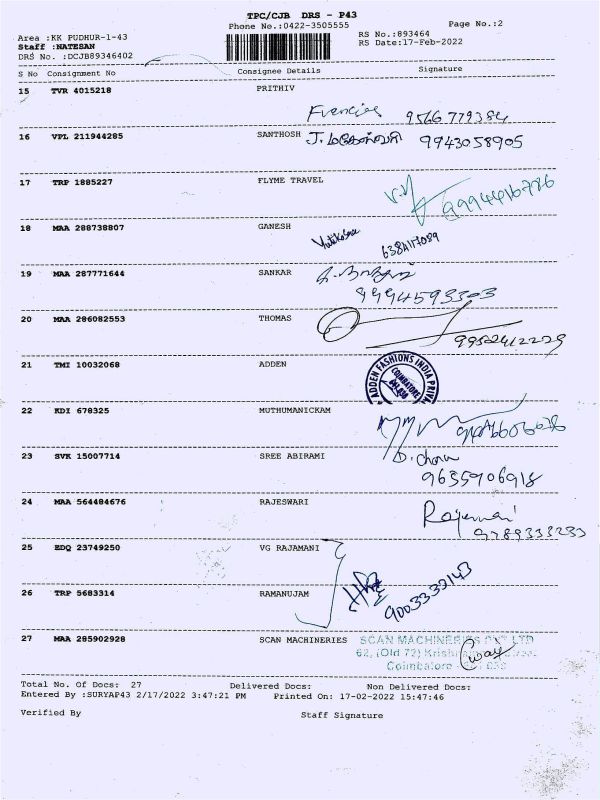 TPC/CJB DRS - P43
Phone No.:0422-3505555
Page No.:2
Area :KK PUDHUR-1-43
RS No.:893464
Staff :NATESAN
RS Date:17-Feb-2022
DRS No. :DCJB89346402
S No Consignment No Consignee Details Signature
15 TVR 4015218 PRITHIV
9566779384
16 VPL 211944285 SANTHOSH J. மகேஸ்வரி 9943058905
17 TRP 1885227 FLYME TRAVEL
9994416786
18 MAA 288738807 GANESH
19 MAA 287771644 SANKAR
9994593303
20 MAA 286082553 THOMAS
9952412229
21 TMI 10032068 ADDEN
ADDEN FASHIONS INDIA PRIVA
COIMBATORE
22 KDI 678325 MUTHUMANICKAM
23 SVK 15007714 SREE ABIRAMI
9655906918
24 MAA 564484676 RAJESWARI
9789333233
25 EDQ 23749250 VG RAJAMANI
26 TRP 5683314 RAMANUJAM
9003332143
27 MAA 285902928 SCAN MACHINERIES SCAN MACHINERIES PVT LTD
62, (Old 72)
Coimbatore
Total No. Of Docs: 27 Delivered Docs: Non Delivered Docs:
Entered By :SURYAP43 2/17/2022 3:47:21 PM Printed On: 17-02-2022 15:47:46
Verified By Staff Signature